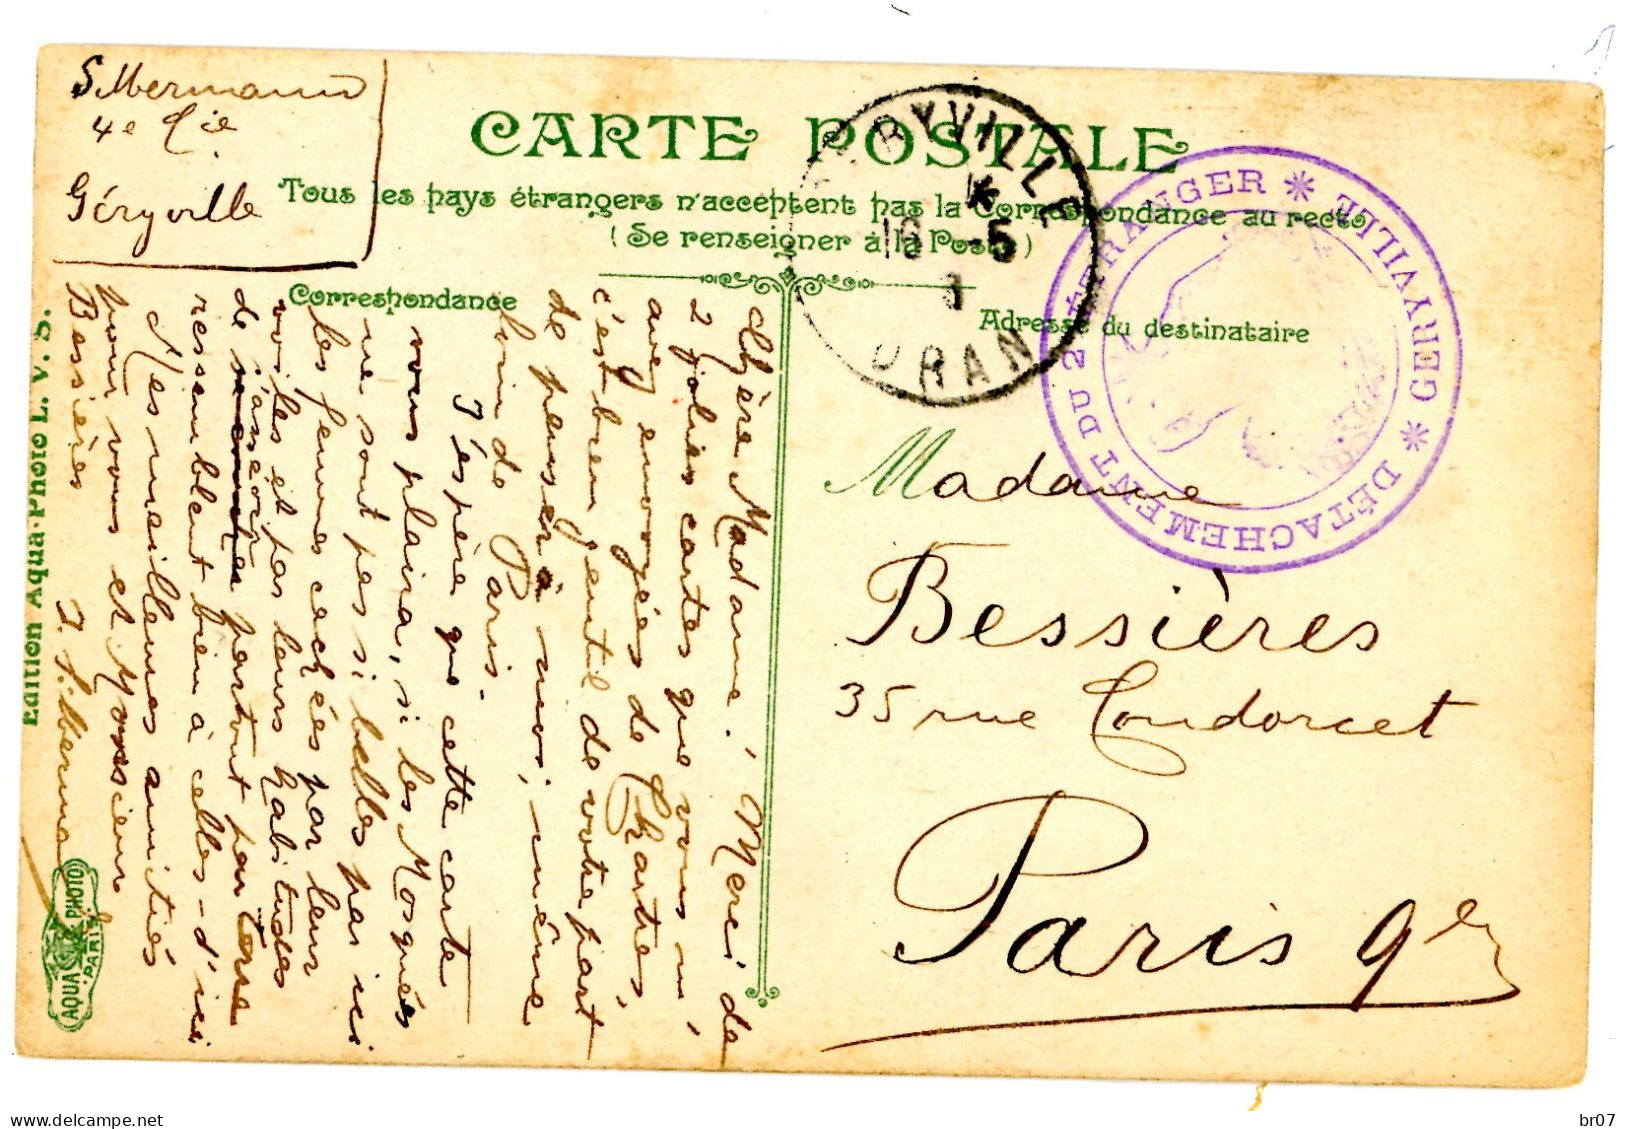 Silbermann
4e Cie
Géryville
CARTE POSTALE
Tous les pays étrangers n'acceptent pas la Correspondance au recto
(Se renseigner à la Poste)
Correspondance
Adresse du destinataire
GERYVILLE
*
16 -5
ORAN
DÉTACHEMENT DU 2 ÉTRANGER * GERYVILLE *
Chère Madame! Merci de
2 jolies cartes que vous m'
avez envoyées de Chartres,
c'est bien gentil de votre part
de penser à moi, même
loin de Paris.
J'espère que cette carte
vous plaira, si les Mosqués
ne sont pas si belles par ici
les femmes cachées par leur
voiles et par leurs habitudes
de s'asseoir partout par terre
ressemblent bien à celles-d'ici
Mes meilleures amitiés
pour vous et Monsieur
Bessières
J. Silbermann
Madame
Bessières
35 rue Condorcet
Paris 9e
Edition Aqua-Photo L. V. S.
AQUA PHOTO
PARIS
delcampe.net
br07